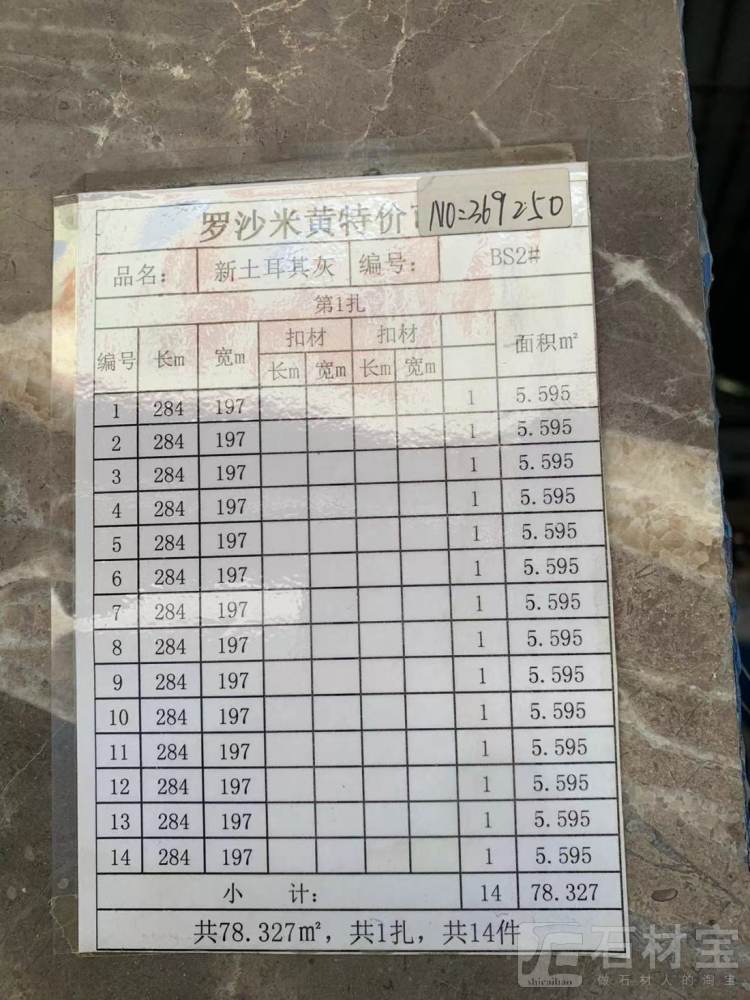 罗沙米黄特价
NO=369250
品名： 新土耳其灰 编号： BS2#
第1扎
编号 长m 宽m 扣材 扣材 面积㎡
长m 宽m 长m 宽m
1 284 197 1 5.595
2 284 197 1 5.595
3 284 197 1 5.595
4 284 197 1 5.595
5 284 197 1 5.595
6 284 197 1 5.595
7 284 197 1 5.595
8 284 197 1 5.595
9 284 197 1 5.595
10 284 197 1 5.595
11 284 197 1 5.595
12 284 197 1 5.595
13 284 197 1 5.595
14 284 197 1 5.595
小 计： 14 78.327
共78.327㎡，共1扎，共14件
石材宝
shicaibao 做石材人的淘宝